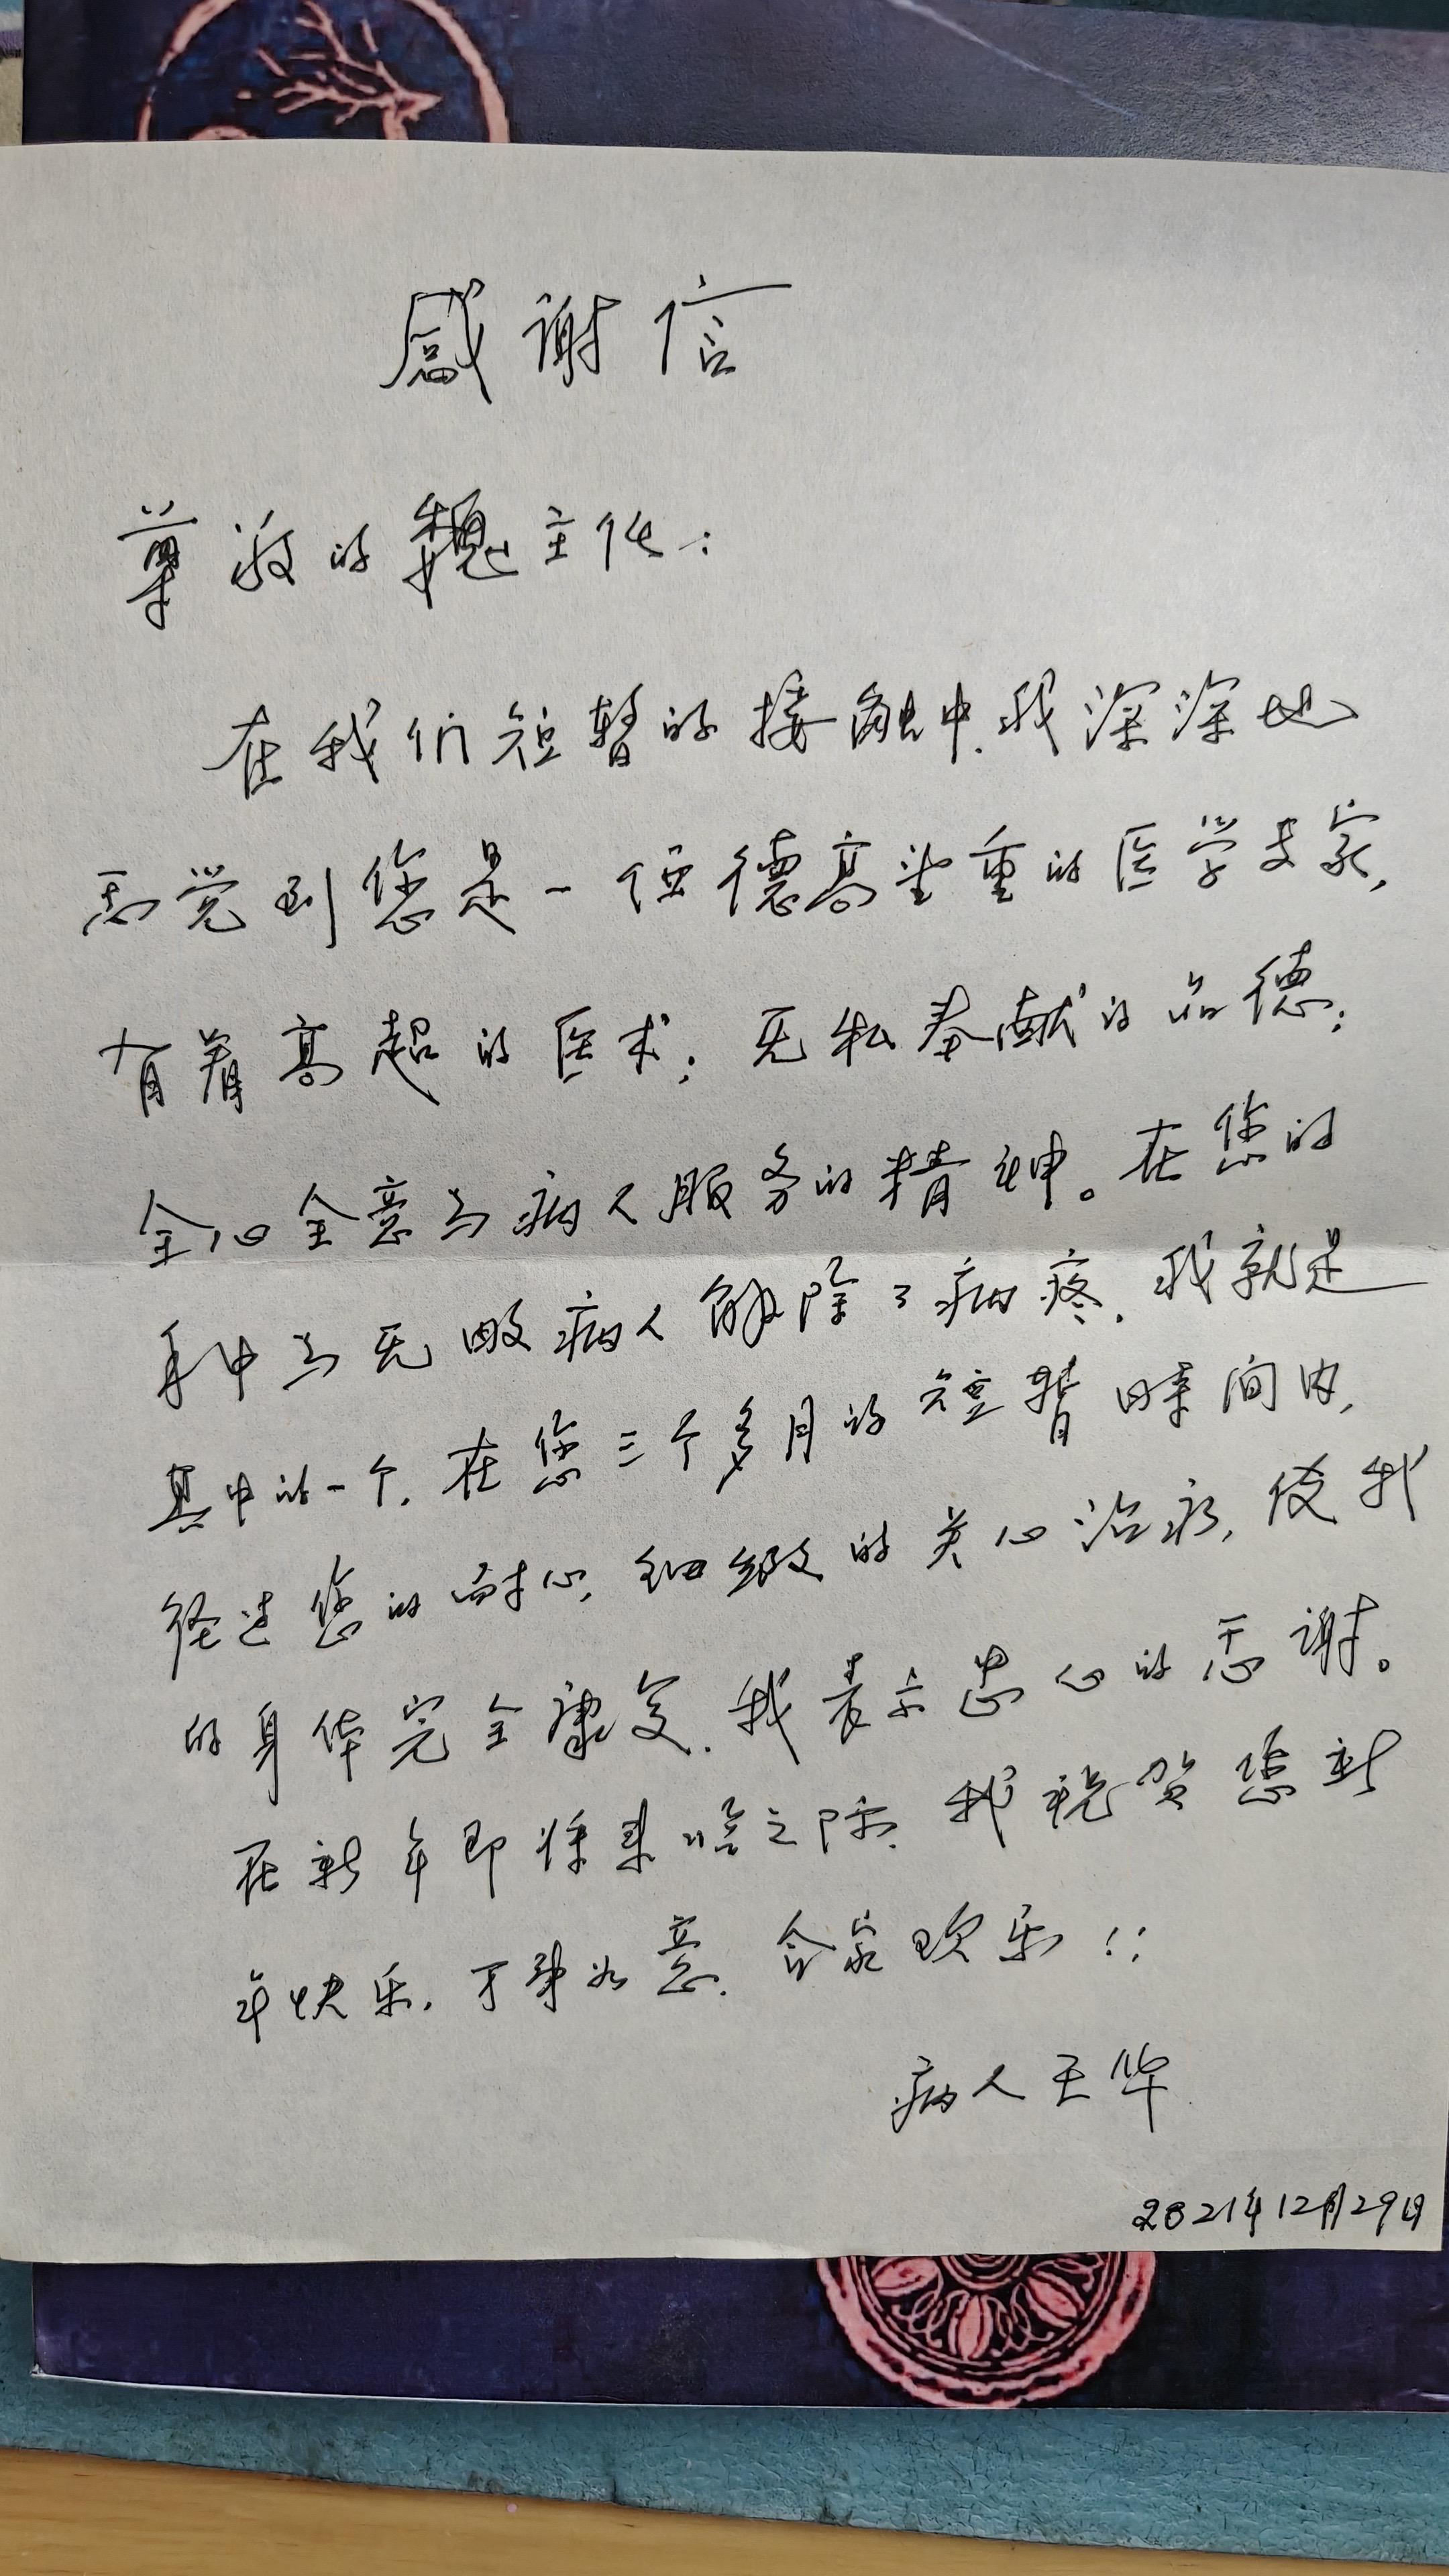 感谢信
尊敬的魏主任：
在我们短暂的接触中,我深深地
感觉到您是一位德高望重的医学专家,
有着高超的医术；无私奉献的品德；
全心全意为病人服务的精神。在您的
手中为无数病人解除了病疼,我就是
其中的一个,在您三个多月的短暂时间内,
经过您的耐心,细致的关心治疗,使我
的身体完全康复,我表示忠心的感谢。
在新年即将来临之际,我祝贺您新
年快乐,万事如意,合家欢乐！！
病人王华
2021年12月29日